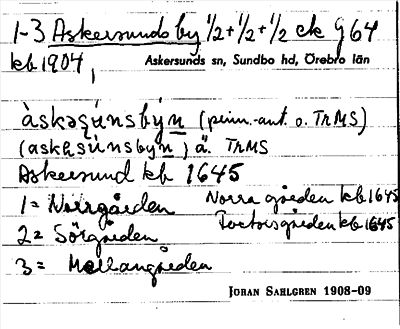 1-3 Askersunds by 1/2+1/2+1/2 ek G 64
kb 1904,
Askersunds sn, Sundbo hd, Örebro län
àskəʂúnsbýn (pinn.-ant. o. TrMS)
(askəsúnsbyn) ä. TrMS
Askersund kb 1645
1= Norrgården Norra gården kb 1645
2= Sörgården gården kb 1645
3= Mellangården
JÖRAN SAHLGREN 1908-09